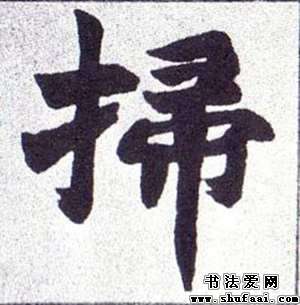 掃
书法爱网
www.shufaai.com